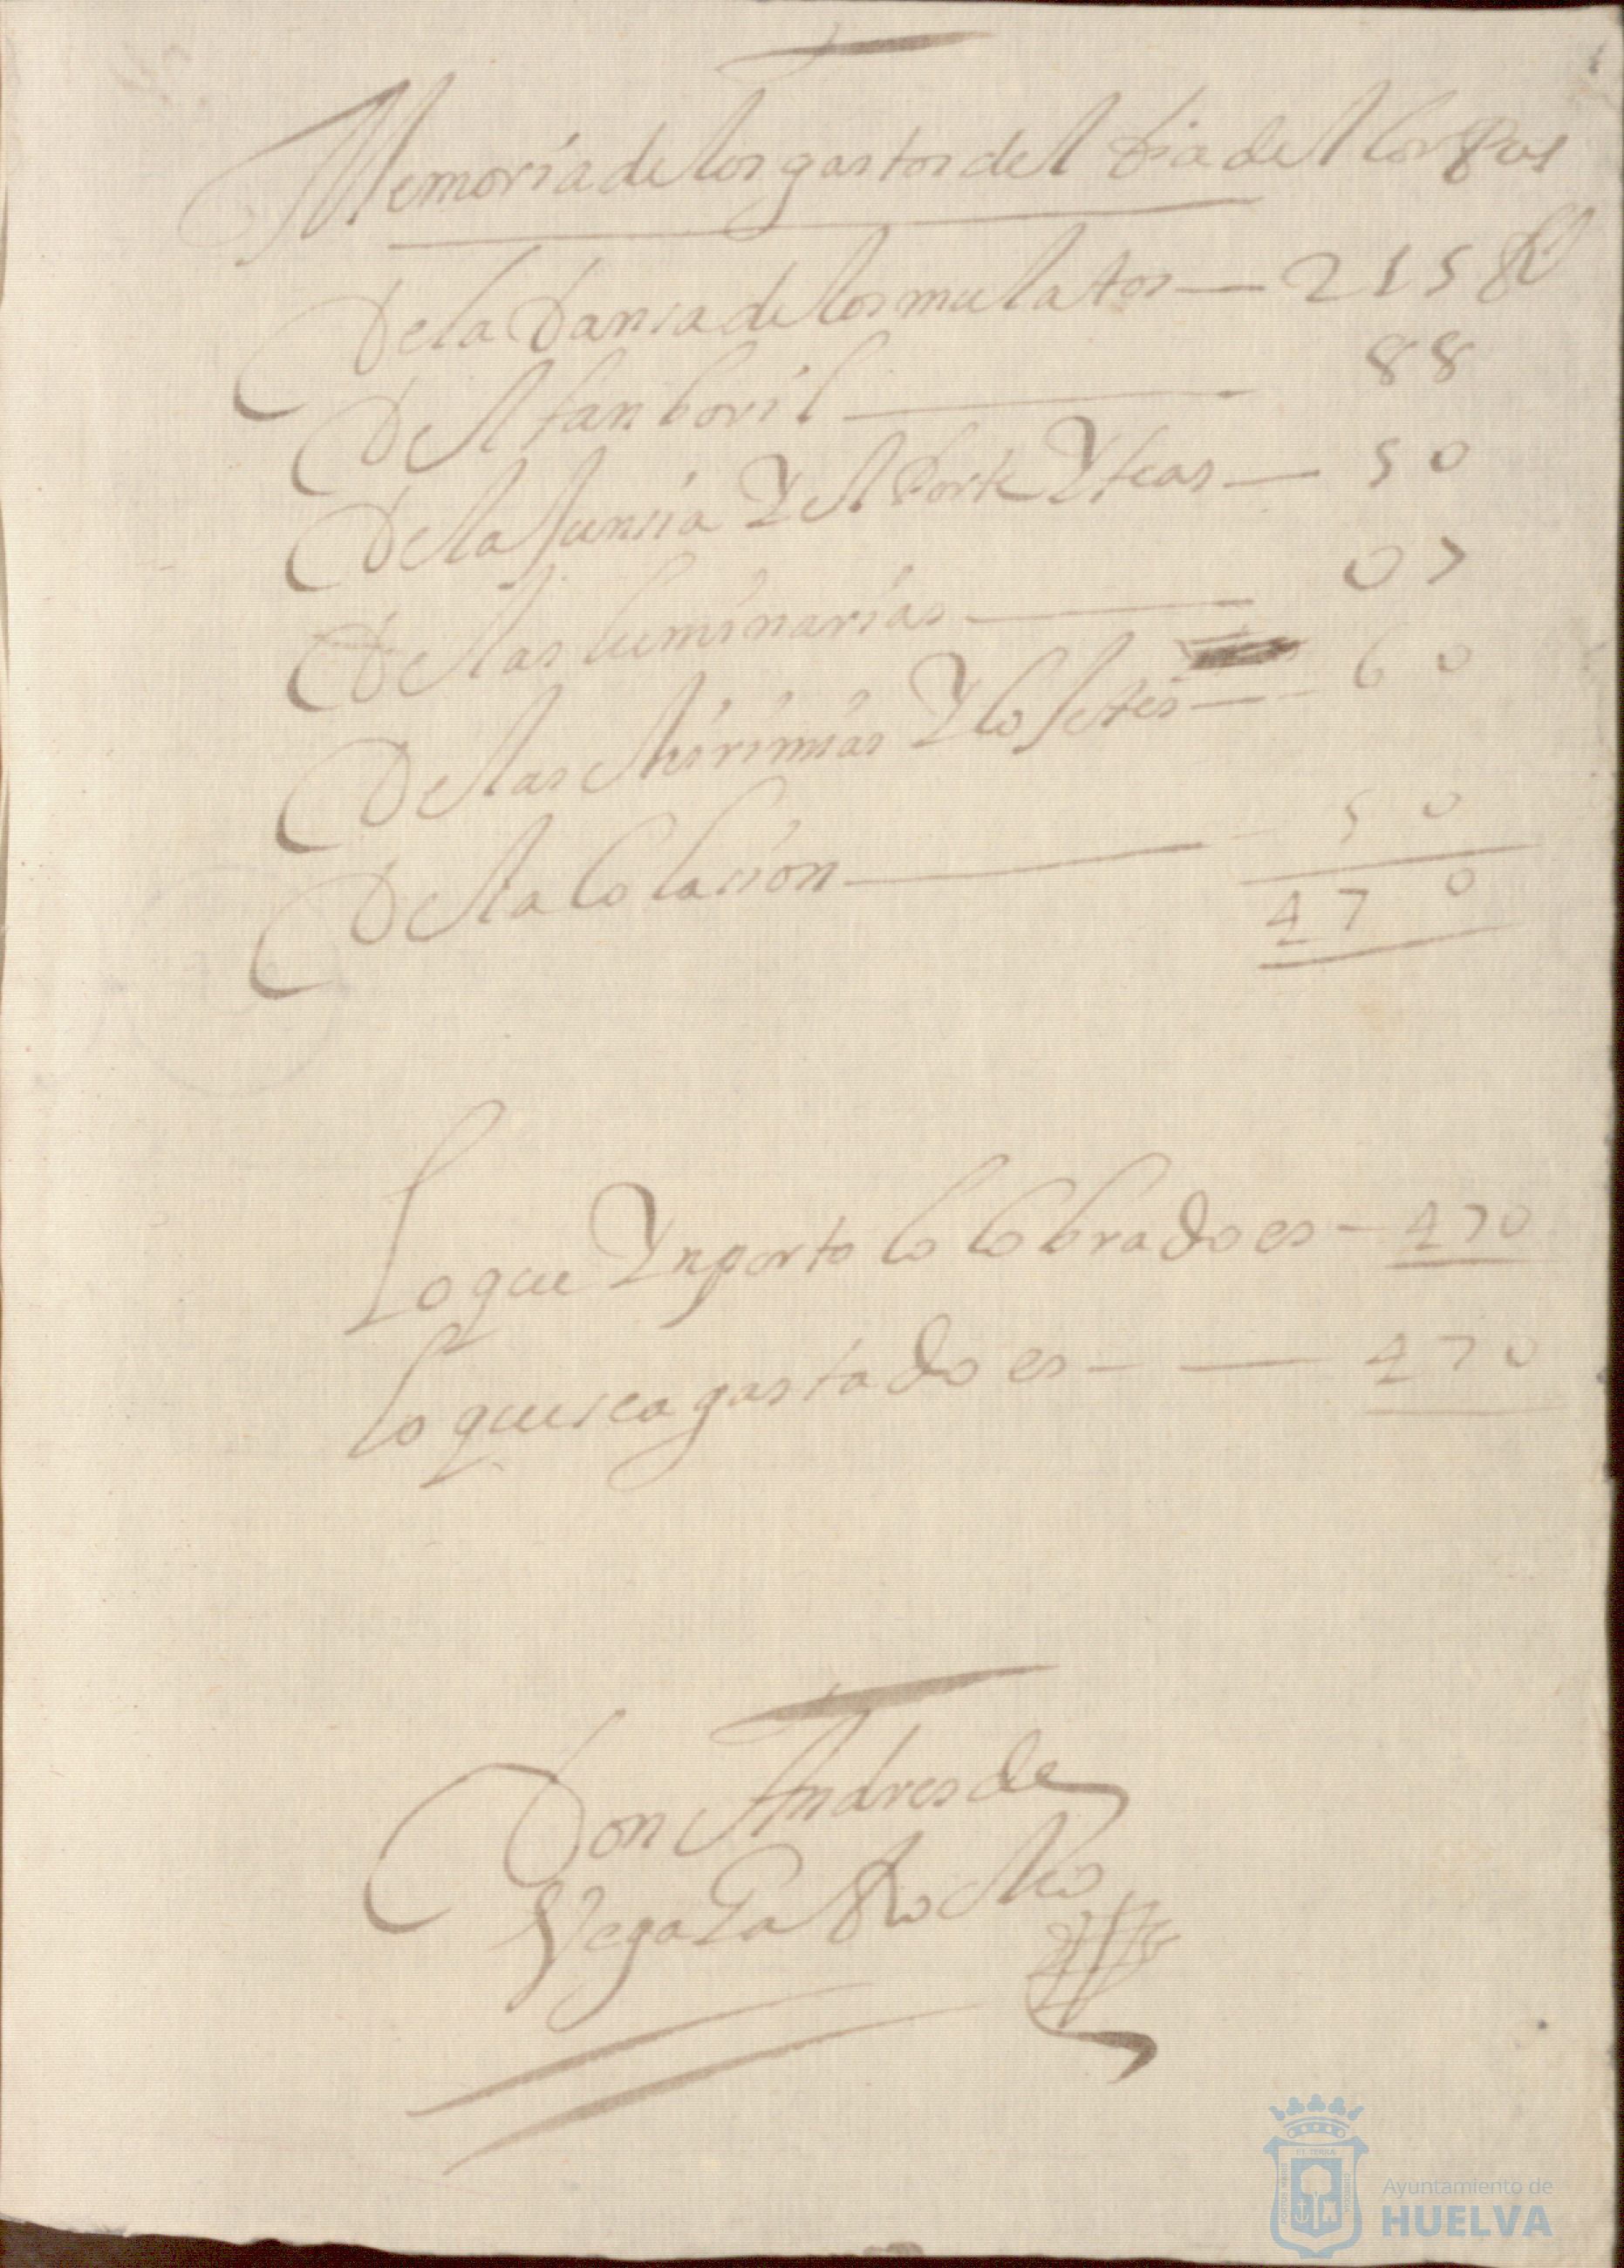 Memoria de los gastos del Dia del Corpus
De la Dansa de los mulatos — 215 R
Del tanboril — 88
De la Juncia Y el Porte Y teas — 50
De las luminarias — 07
De las chirimias Y cohetes — 60
De la Colasion — 50
470
Lo que Ynporto lo Cobrado es — 470
lo que se a gastado es — 470
Don Andres de
Vega
Ayuntamiento de
HUELVA